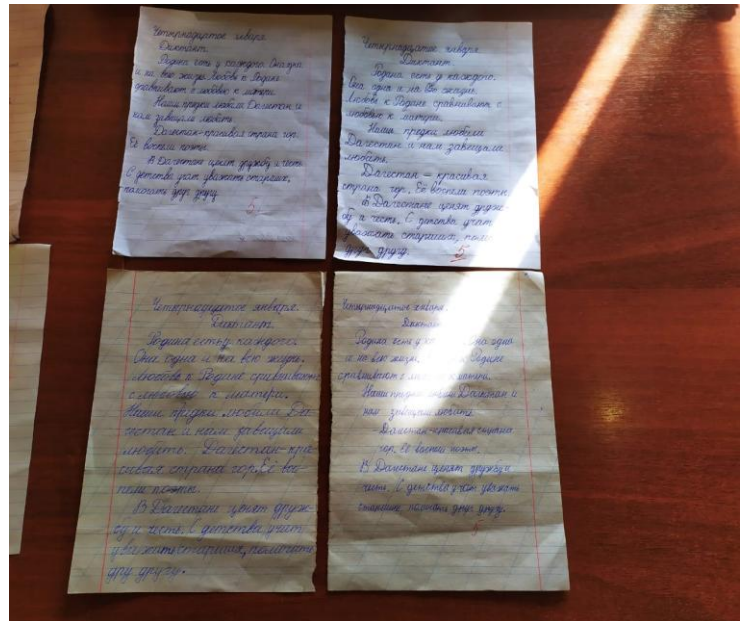 Четырнадцатое января.
Диктант.
Родина есть у каждого. Она одна
и на всю жизнь. Любовь к Родине
сравнивают с любовью к матери.
Наши предки любили Дагестан и
нам завещали любить.
Дагестан-красивая страна гор.
Её воспели поэты.
В Дагестане ценят дружбу и честь.
С детства учат уважать старших,
помогать друг другу.
5
Четырнадцатое января.
Диктант.
Родина есть у каждого.
Она одна и на всю жизнь.
Любовь к Родине сравнивают с
любовью к матери.
Наши предки любили
Дагестан и нам завещали
любить.
Дагестан – красивая
страна гор. Её воспели поэты.
В Дагестане ценят друж-
бу и честь. С детства учат
уважать старших, помо
друг другу.
5
Четырнадцатое января.
Диктант.
Родина есть у каждого.
Она одна и на всю жизнь.
Любовь к Родине сравнивают
с любовью к матери.
Наши предки любили Да-
гестан и нам завещали
любить. Дагестан-кра-
сивая страна гор. Её вос-
пели поэты.
В Дагестане ценят друж-
бу и честь. С детства учат
уважать старших, помогать
дру другу.
Четырнадцатое января.
Диктант.
Родина есть у она одна
и на всю жизнь. к Родине
сравнивают с
Наши предки Дагестан и
нам завещали любить.
Дагестан-красивая страна
гор. Её воспели поэты.
В Дагестане ценят дружбу и
честь. С детства учат уважать
друг другу.
5